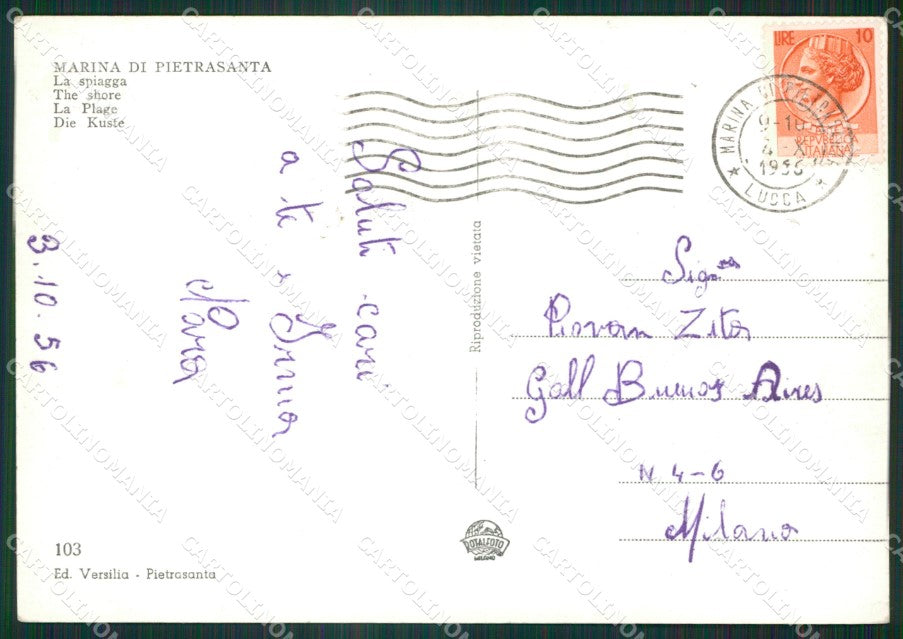 MARINA DI PIETRASANTA
La spiagga
The shore
La Plage
Die Kuste
3.10.56
Saluti cari
a te e Irma
Nara
103
Ed. Versilia - Pietrasanta
Riproduzione vietata
TOTALFOTO
MILANO
LIRE 10
REPVBBLICA
ITALIANA
MARINA DI PIETRASANTA
9-10
4-X
1956
* LUCCA *
Sig.na
Piovan Zita
Gall Buenos Aires
N 4-6
Milano
CARTOLINOMANIA